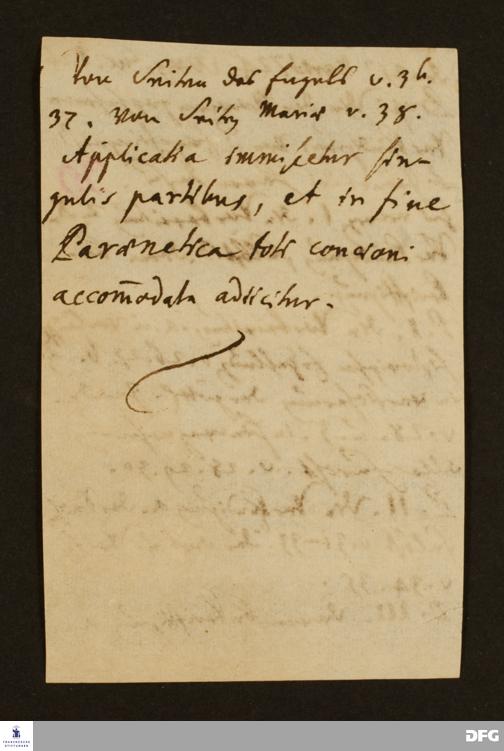 Von Seiten des Engels v. 36.
37. Von Seiten Mariæ v. 38.
Applicatia immiscetur sin-
gulis partibus, et in fine
Parænetica toti concioni
accom̄odata adiicitur.
FRANCKESCHE
STIFTUNGEN
DFG